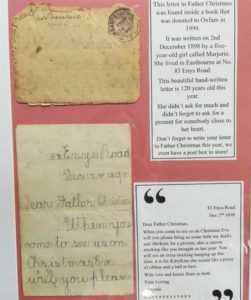 Eastbourne
This letter to Father Christmas
was found inside a book that
was donated to Oxfam in
1999.
It was written on 2nd
December 1898 by a five-
year-old girl called Marjorie.
She lived in Eastbourne at No.
83 Enys Road.
This beautiful hand-written
letter is 120 years old this
year.
She didn't ask for much and
didn't forget to ask for a
present for somebody close to
her heart.
Don't forget to write your letter
to Father Christmas this year, we
even have a post box in store!
83 Enys Road
Dear Father Christmas
When you
come to see us on
Christmas Eve
will you please
83 Enys Road
Dec 2nd 1898
Dear Father Christmas,
When you come to see us on Christmas Eve
will you please bring us some little toy ducks
and chickens for a present, also a canvas
stocking like you brought us last year. You
will see an extra stocking hanging up this
time, it is for Kittykins she would like a piece
of ribbon and a ball or hers.
With love and kisses from us both
Your Loving